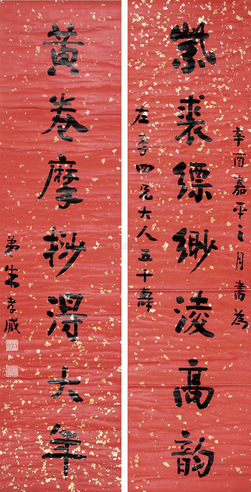 辛酉嘉平之月書為
紫裘縹緲淩高韻
左季四兄大人五十壽
黃卷摩挱得大年
弟朱孝臧